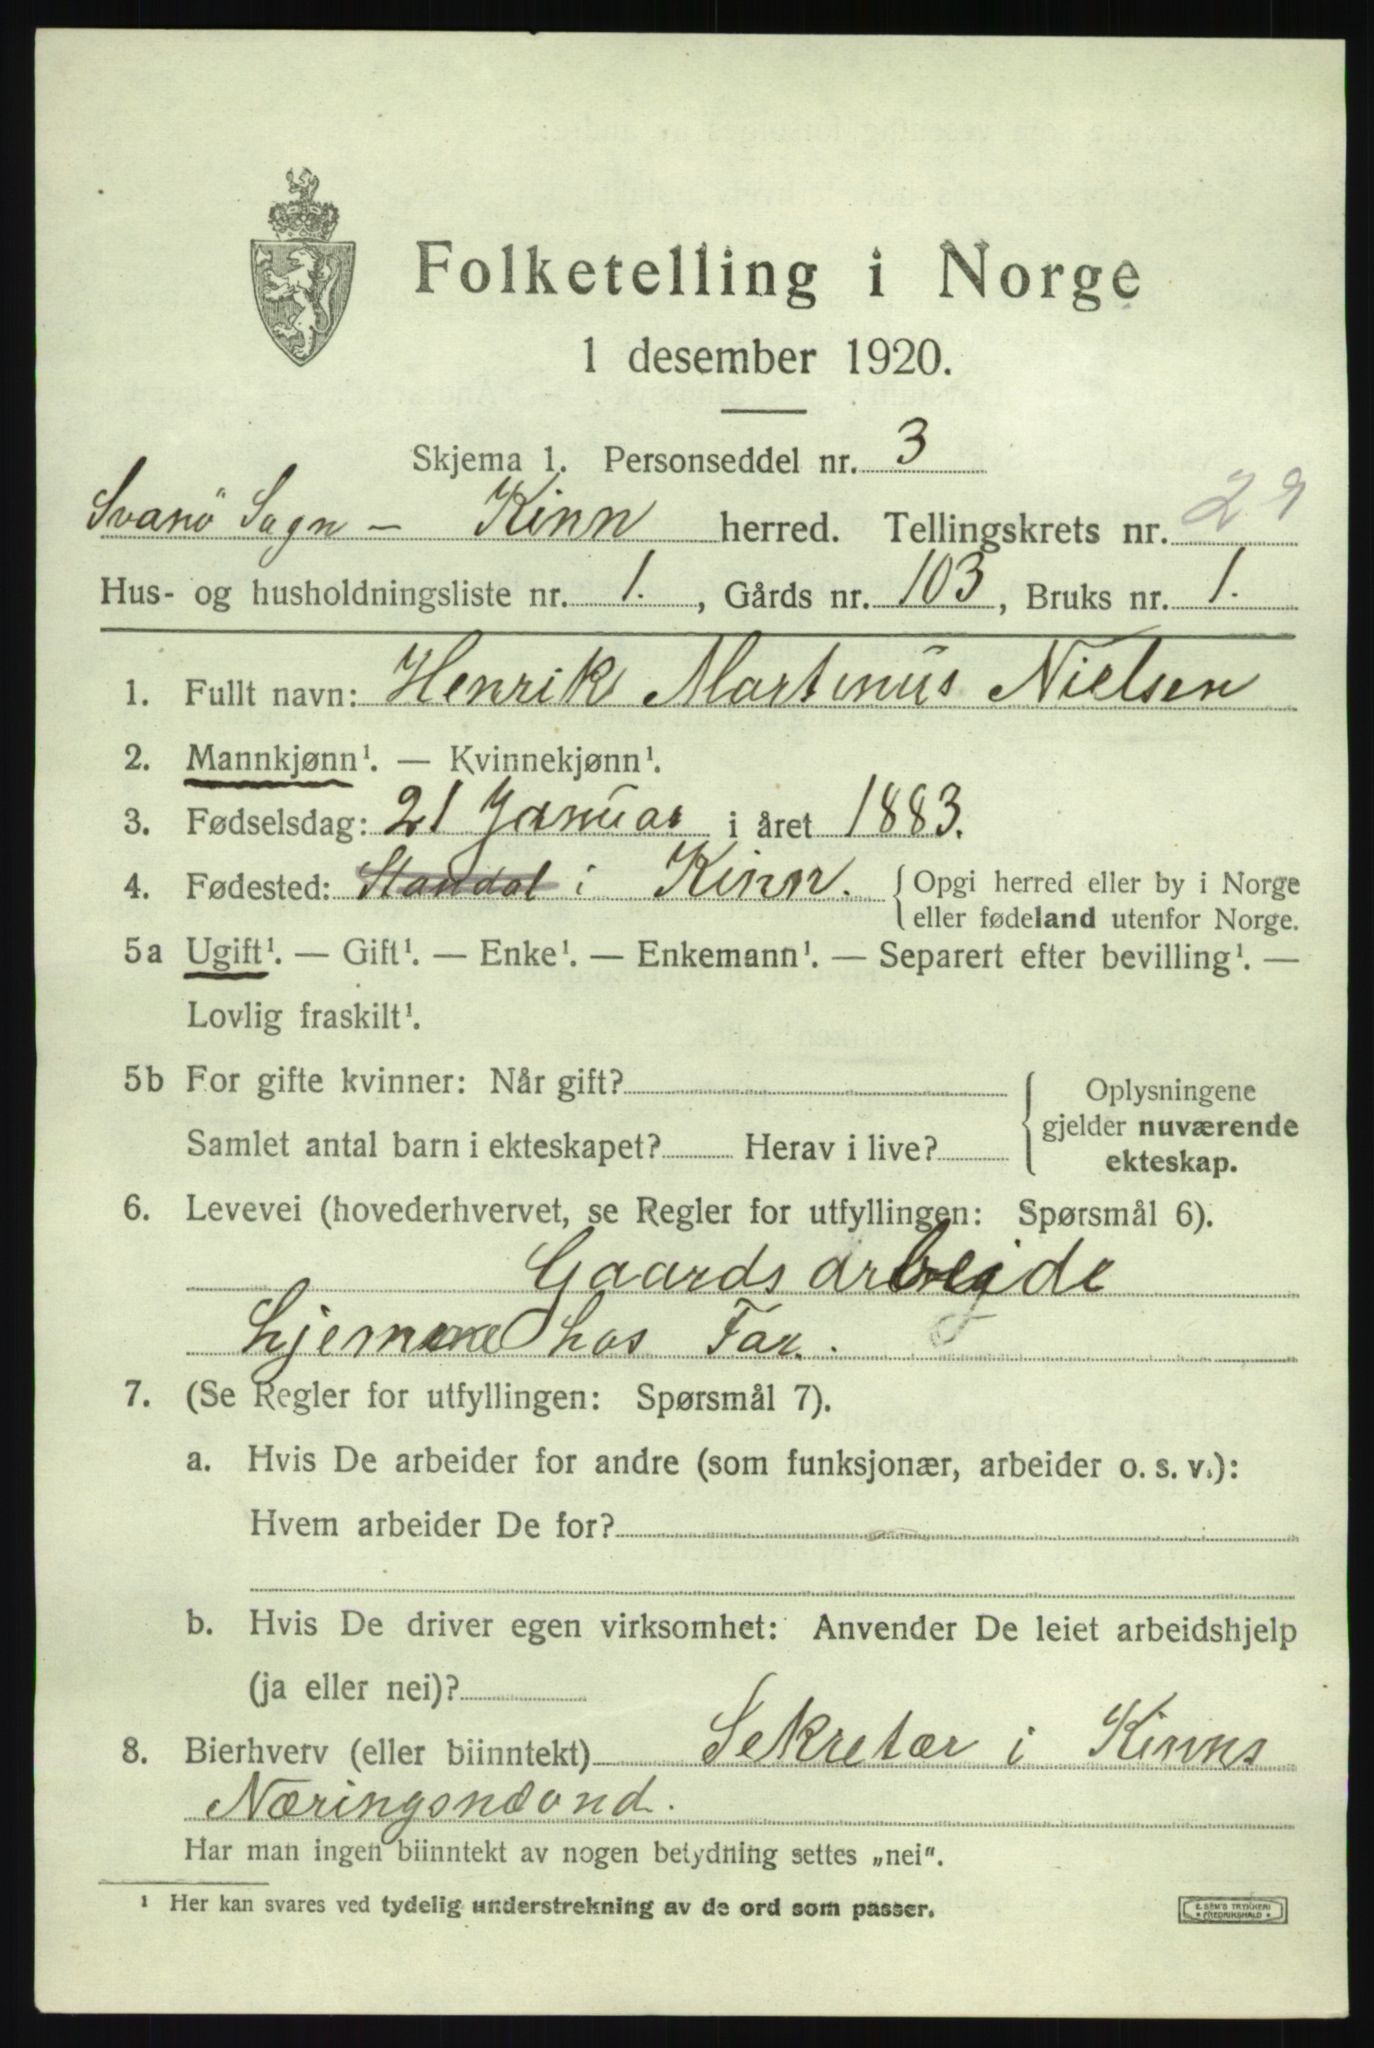 Folketelling i Norge
1 desember 1920.
Skjema 1. Personseddel nr. 3
Svanö Sogn - Kinn herred. Tellingskrets nr. 29
Hus- og husholdningsliste nr. 1., Gårds nr. 103, Bruks nr. 1.
1. Fullt navn: Henrik Martinus Nielsen
2. Mannkjønn¹. — Kvinnekjønn¹.
3. Fødselsdag: 21 Januar i året 1883.
4. Fødested: Standal i Kinn. { Opgi herred eller by i Norge
eller fødeland utenfor Norge.
5a Ugift¹. — Gift¹. — Enke¹. — Enkemann¹. — Separert efter bevilling¹. —
Lovlig fraskilt¹.
5b For gifte kvinner: Når gift?
Samlet antal barn i ekteskapet? Herav i live?
Oplysningene
gjelder nuværende
ekteskap.
6. Levevei (hovederhvervet, se Regler for utfyllingen: Spørsmål 6).
Gaardsarbeide
hjemme hos Far.
7. (Se Regler for utfyllingen: Spørsmål 7).
a. Hvis De arbeider for andre (som funksjonær, arbeider o. s. v.):
Hvem arbeider De for?
b. Hvis De driver egen virksomhet: Anvender De leiet arbeidshjelp
(ja eller nei)?
8. Bierhverv (eller biinntekt) Sekretær i Kinns
Næringsnævnd.
Har man ingen biinntekt av nogen betydning settes „nei".
¹ Her kan svares ved tydelig understrekning av de ord som passer.
E. SEM'S TRYKKERI
* FREDRIKSHALD *